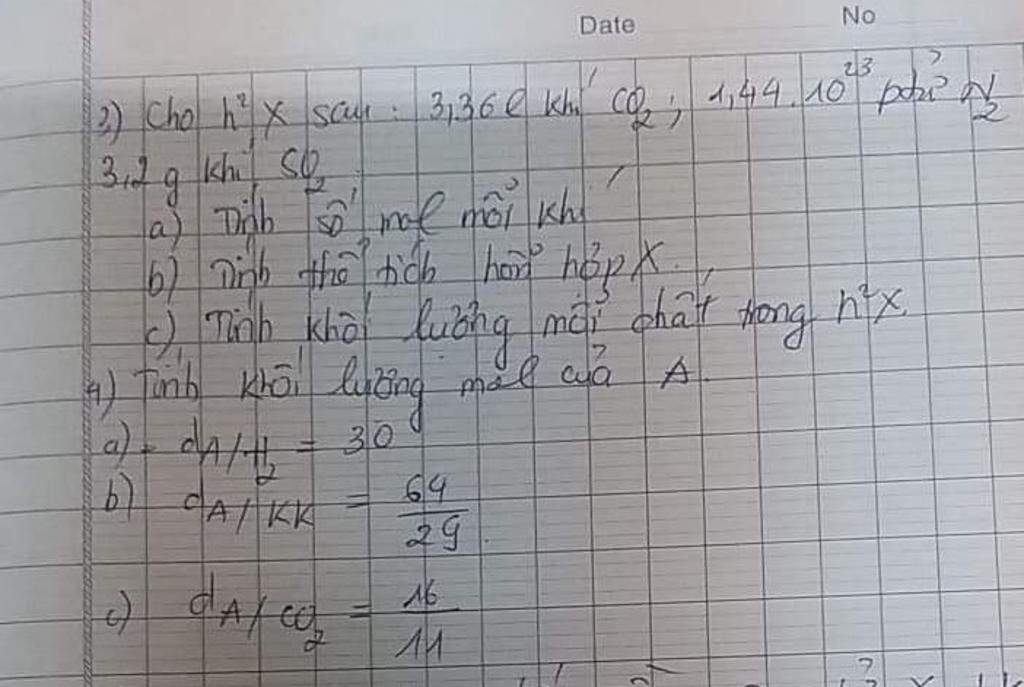 Date No
3) Cho h² X sau : 3,36l khí CO₂ ; 1,44.10²³ ptử N₂
3,2 g khí SO₂
a) Tính số mol mỗi khí
b) Tính thể tích hỗn hợp X.
c) Tính khối lượng mỗi chất trong h² X.
4) Tính khối lượng mol của A.
a) dA/H₂ = 30
b) dA/KK = 64/29.
c) dA/CO₂ = 16/11